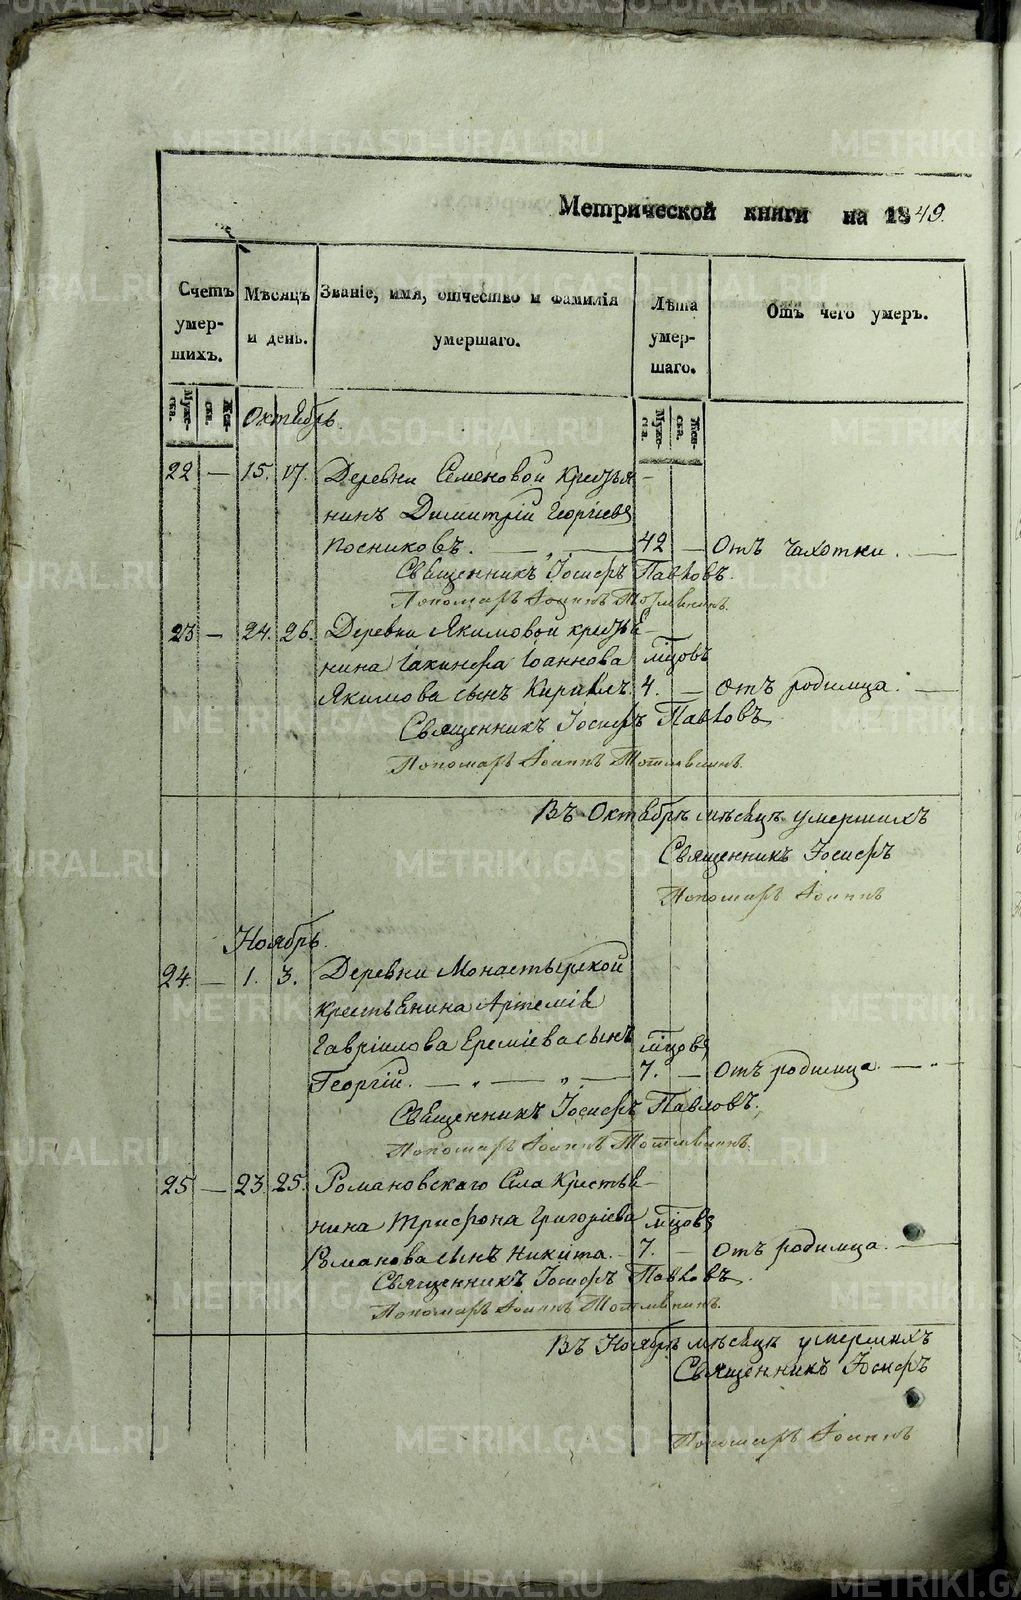 Метрической книги на 1849.
Счетъ умер- шихъ.
Мѣсяцъ и день.
Званіе, имя, отчество и фамилія умершаго.
Лѣта умер- шаго.
Отъ чего умеръ.
Муже- ска.
Жен- ска.
Муже- ска.
Жен- ска.
Октябрь.
22 — 15. 17. Деревни Семеновой Крестья-
нинъ Димитрій Георгіевъ
Посниковъ. — „ — 42 — Отъ чахотки. —
Священникъ Іосифъ Павловъ.
Пономарь Іоаннъ
23 — 24. 26. Деревни Якимовой кресть-
нина Іакинфа Іоаннова мѣцовъ
Якимова сынъ Кирилъ 4. — Отъ родимца. —
Священникъ Іосифъ Павловъ.
Пономарь Іоаннъ
Въ Октябрѣ мѣсяцѣ умершихъ
Священникъ Іосифъ
Пономарь Іоаннъ
Ноябрь.
24. — 1. 3. Деревни Монастырской
крестьянина Артемія
Гавріилова Еремѣева сынъ мѣцовъ
Георгій. — „ — „ — 7. — Отъ родимца. — „
Священникъ Іосифъ Павловъ.
Пономарь Іоаннъ
25 — 23. 25. Романовскаго Села Кресть-
нина Трифона Григоріева мѣцовъ
Романова сынъ Никита. — 7. — Отъ родимца. —
Священникъ Іосифъ Павловъ.
Пономарь Іоаннъ
Въ Ноябрѣ мѣсяцѣ умершихъ
Священникъ Іосифъ
Пономарь Іоаннъ
METRIKI.GASO-URAL.RU